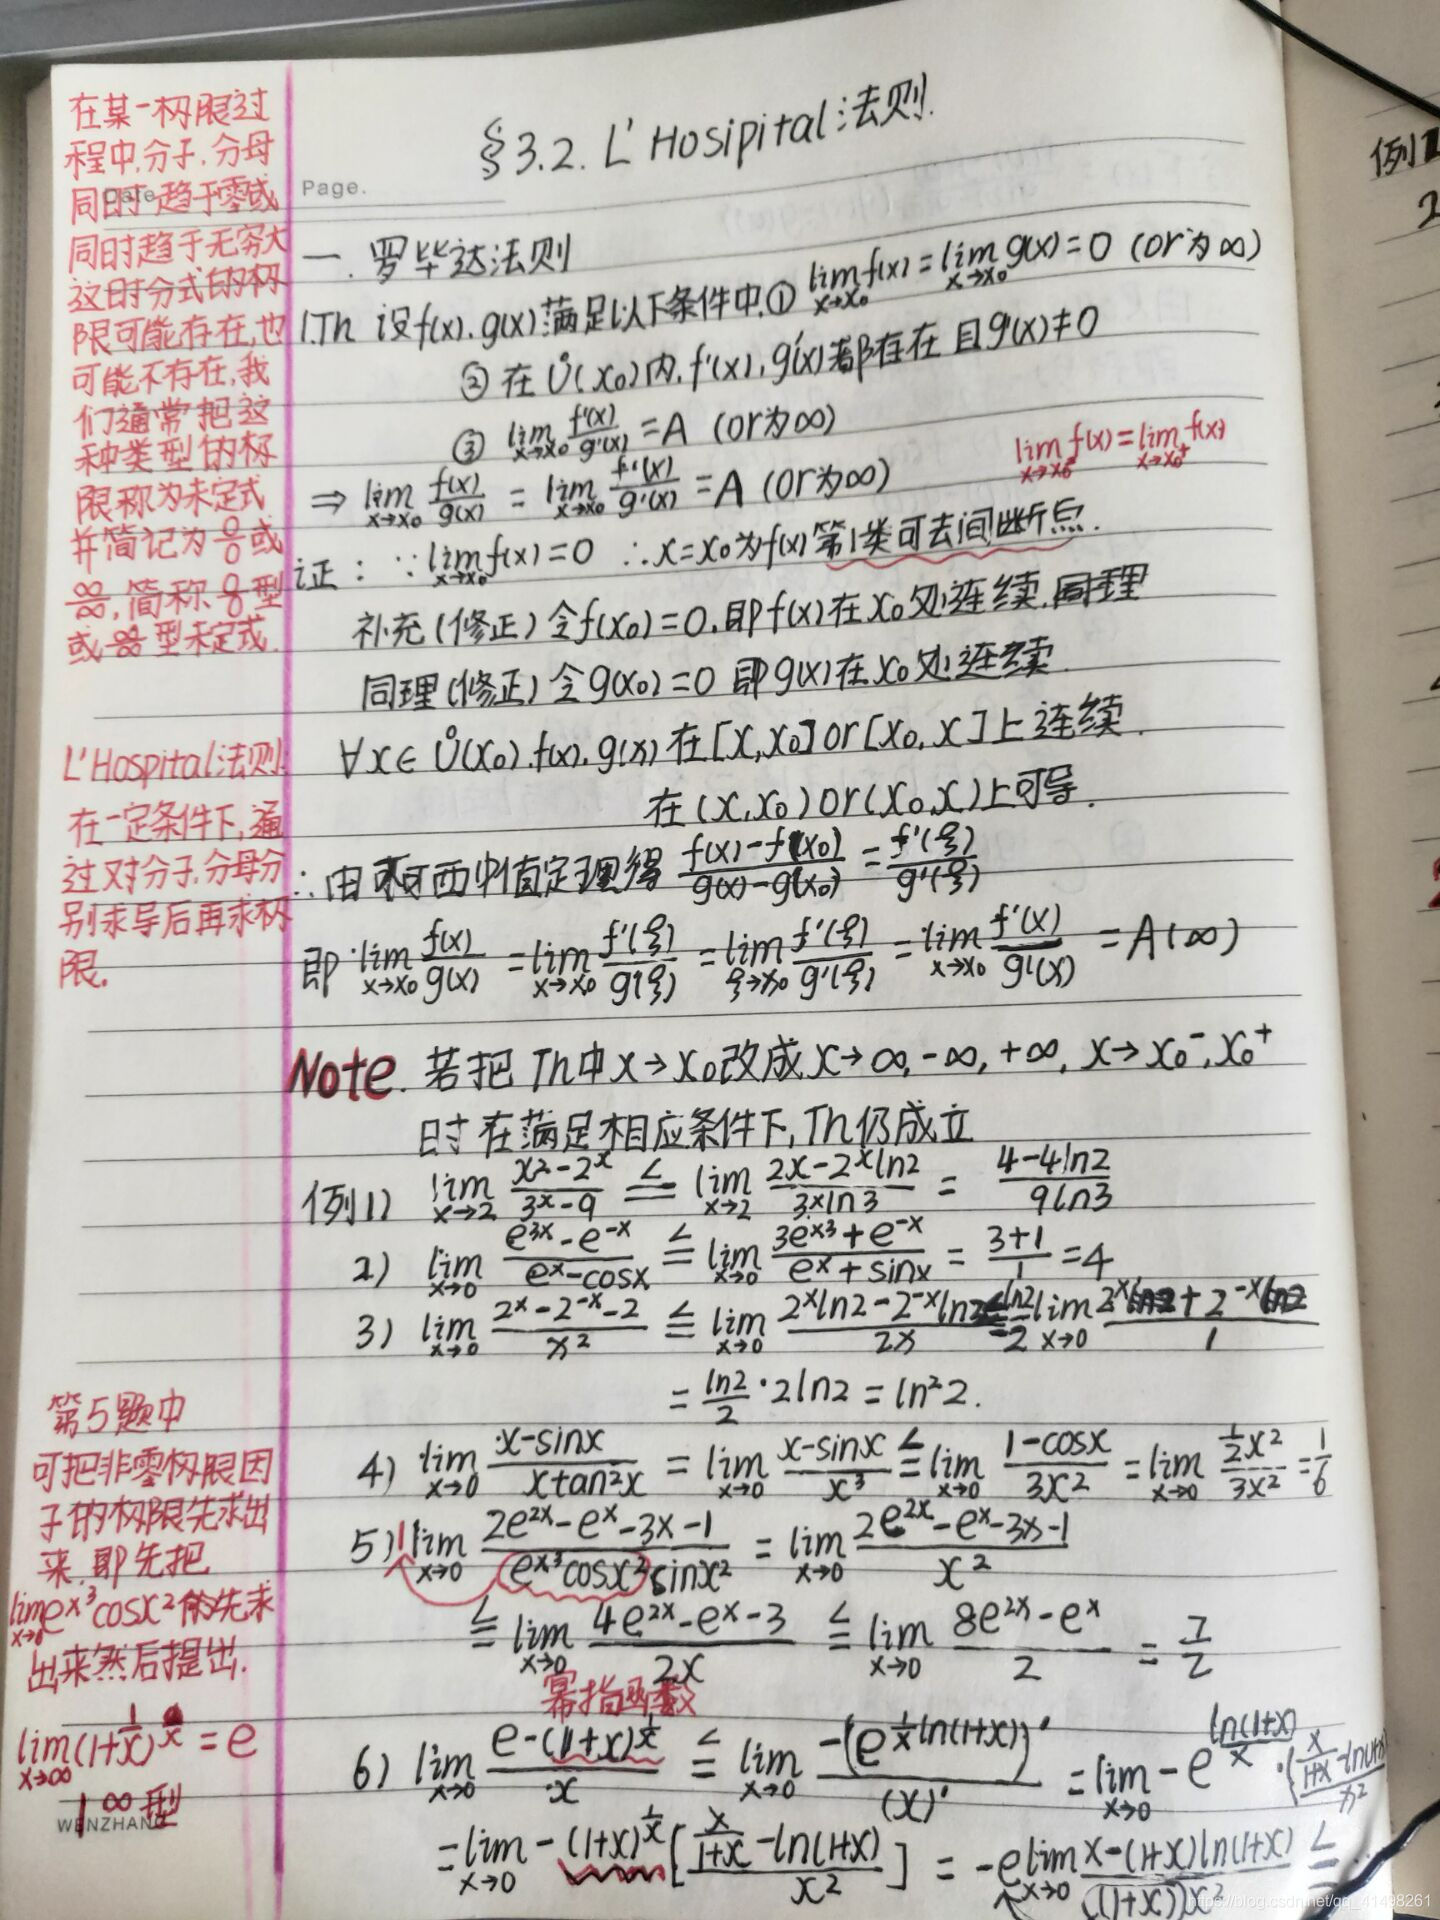 §3.2. L'Hosipital法则.
Page.
Date
在某一极限过
程中,分子.分母
同时趋于零或
同时趋于无穷大
这时分式的极
限可能存在,也
可能不存在,我
们通常把这
种类型的极
限称为未定式
并简记为 0/0 或
∞/∞,简称 0/0 型
或 ∞/∞ 型未定式.
L'Hospital法则.
在一定条件下,通
过对分子.分母分
别求导后再求极
限.
一.罗毕达法则
1.Th 设f(x).g(x)满足以下条件中.① lim_{x→x₀} f(x) = lim_{x→x₀} g(x) = 0 (or为∞)
② 在Ů(x₀)内.f'(x),g'(x)都存在且g'(x)≠0
③ lim_{x→x₀} f'(x)/g'(x) = A (or为∞)
lim_{x→x₀⁻} f(x) = lim_{x→x₀⁺} f(x)
⇒ lim_{x→x₀} f(x)/g(x) = lim_{x→x₀} f'(x)/g'(x) = A (or为∞)
证: ∵ lim_{x→x₀} f(x) = 0 ∴x=x₀为f(x)第1类可去间断点.
补充(修正)令f(x₀)=0.即f(x)在x₀处连续.同理
同理(修正)令g(x₀)=0 即g(x)在x₀处连续.
∀x∈Ů(x₀).f(x).g(x)在[x,x₀]or[x₀,x]上连续.
在(x,x₀)or(x₀,x)上可导.
∴由柯西中值定理得 (f(x)-f(x₀))/(g(x)-g(x₀)) = f'(ξ)/g'(ξ)
即 lim_{x→x₀} f(x)/g(x) = lim_{x→x₀} f'(ξ)/g'(ξ) = lim_{ξ→x₀} f'(ξ)/g'(ξ) = lim_{x→x₀} f'(x)/g'(x) = A(∞)
Note. 若把Th中x→x₀改成x→∞,-∞,+∞, x→x₀⁻,x₀⁺
时在满足相应条件下,Th仍成立
例1) lim_{x→2} (x²-2ˣ)/(3ˣ-9) =^L lim_{x→2} (2x-2ˣln2)/(3ˣln3) = (4-4ln2)/(9ln3)
2) lim_{x→0} (e^{3x}-e^{-x})/(eˣ-cosx) =^L lim_{x→0} (3e^{x3}+e^{-x})/(eˣ+sinx) = (3+1)/1 = 4
3) lim_{x→0} (2ˣ-2^{-x}-2)/x² =^L lim_{x→0} (2ˣln2-2^{-x}ln2)/2x = ln2/2 lim_{x→0} (2ˣln2+2^{-x}ln2)/1
= ln2/2 · 2ln2 = ln²2.
4) lim_{x→0} (x-sinx)/(xtan²x) = lim_{x→0} (x-sinx)/x³ =^L lim_{x→0} (1-cosx)/3x² = lim_{x→0} (½x²)/3x² = 1/6
5) 1 lim_{x→0} (2e^{2x}-eˣ-3x-1)/(e^{x³}cosx²sinx²) = lim_{x→0} (2e^{2x}-eˣ-3x-1)/x²
=^L lim_{x→0} (4e^{2x}-eˣ-3)/2x =^L lim_{x→0} (8e^{2x}-eˣ)/2 = 7/2
幂指函数
6) lim_{x→0} (e-(1+x)^{1/x})/x =^L lim_{x→0} -(e^{1/x ln(1+x)})'/(x)' = lim_{x→0} -e^{ln(1+x)/x}·(x/(1+x)-ln(1+x))/x²
= lim_{x→0} -(1+x)^{1/x}[(x/(1+x)-ln(1+x))/x²] = -e lim_{x→0} (x-(1+x)ln(1+x))/((1+x)x²) =^L ...
第5题中
可把非零极限因
子的极限先求出
来.即先把
lim_{x→0} e^{x³}cosx²的先求
出来然后提出.
lim_{x→∞} (1+1/x)ˣ = e
1^∞型
WENZHANG
例1
2
https://blog.csdn.net/qq_41498261